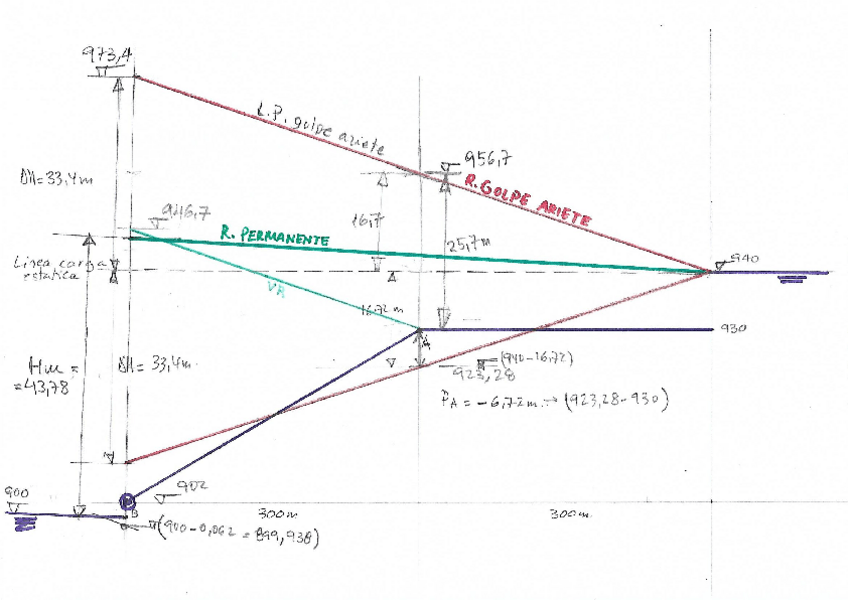 973,4
L.P. golpe ariete
956,7
R. GOLPE ARIETE
ΔH = 33,4m
946,7
R. PERMANENTE
16,7
25,7m
Línea carga
estática
940
VA
16,72 m
930
A
Hm =
=43,78
ΔH = 33,4m.
(940-16,72)
923,28
PA = -6,72m → (923,28-930)
900
902
B
300m
300m.
(900-0,062 = 899,938)